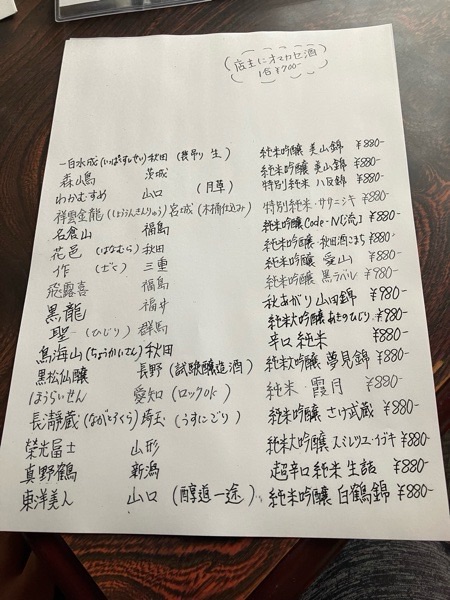 店主にオマカセ酒
1合 ¥700-
一白水成(いっぱくすいせい) 秋田 (袋吊り 生) 純米吟醸 美山錦 ¥880-
森嶋 茨城 純米吟醸 美山錦 ¥880-
わかむすめ 山口 (月草) 特別純米 八反錦 ¥880-
祥雲金龍(しょううんきんりゅう) 宮城 (木桶仕込み) 特別純米・ササニシキ ¥880-
名倉山 福島 純米吟醸 Code-N ¥880-
花邑 (はなむら) 秋田 純米吟醸・秋田酒こまち ¥880-
作 (ざく) 三重 純米吟醸 愛山 ¥880-
飛露喜 福島 純米吟醸 黒ラベル ¥980-
黒龍 福井 秋あがり 山田錦 ¥980-
聖 (ひじり) 群馬 純米大吟醸 ¥980-
鳥海山(ちょうかいさん) 秋田 辛口 純米 ¥880-
黒松仙醸 長野 (試験醸造酒) 純米大吟醸 夢見錦 ¥880-
ほうらいせん 愛知 (ロックok) 純米・霞月 ¥880-
長瀞蔵 (ながとろくら) 埼玉 (うすにごり) 純米吟醸 さけ武蔵 ¥880-
栄光冨士 山形 純米大吟醸 ¥880-
真野鶴 新潟 超辛口 純米 生詰 ¥880-
東洋美人 山口 (醇道一途) 純米吟醸 白鶴錦 ¥880-